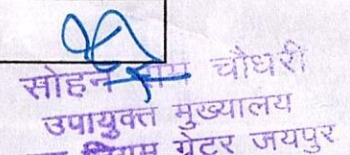 सोहन राम चौधरी
उपायुक्त मुख्यालय
निगम ग्रेटर जयपुर